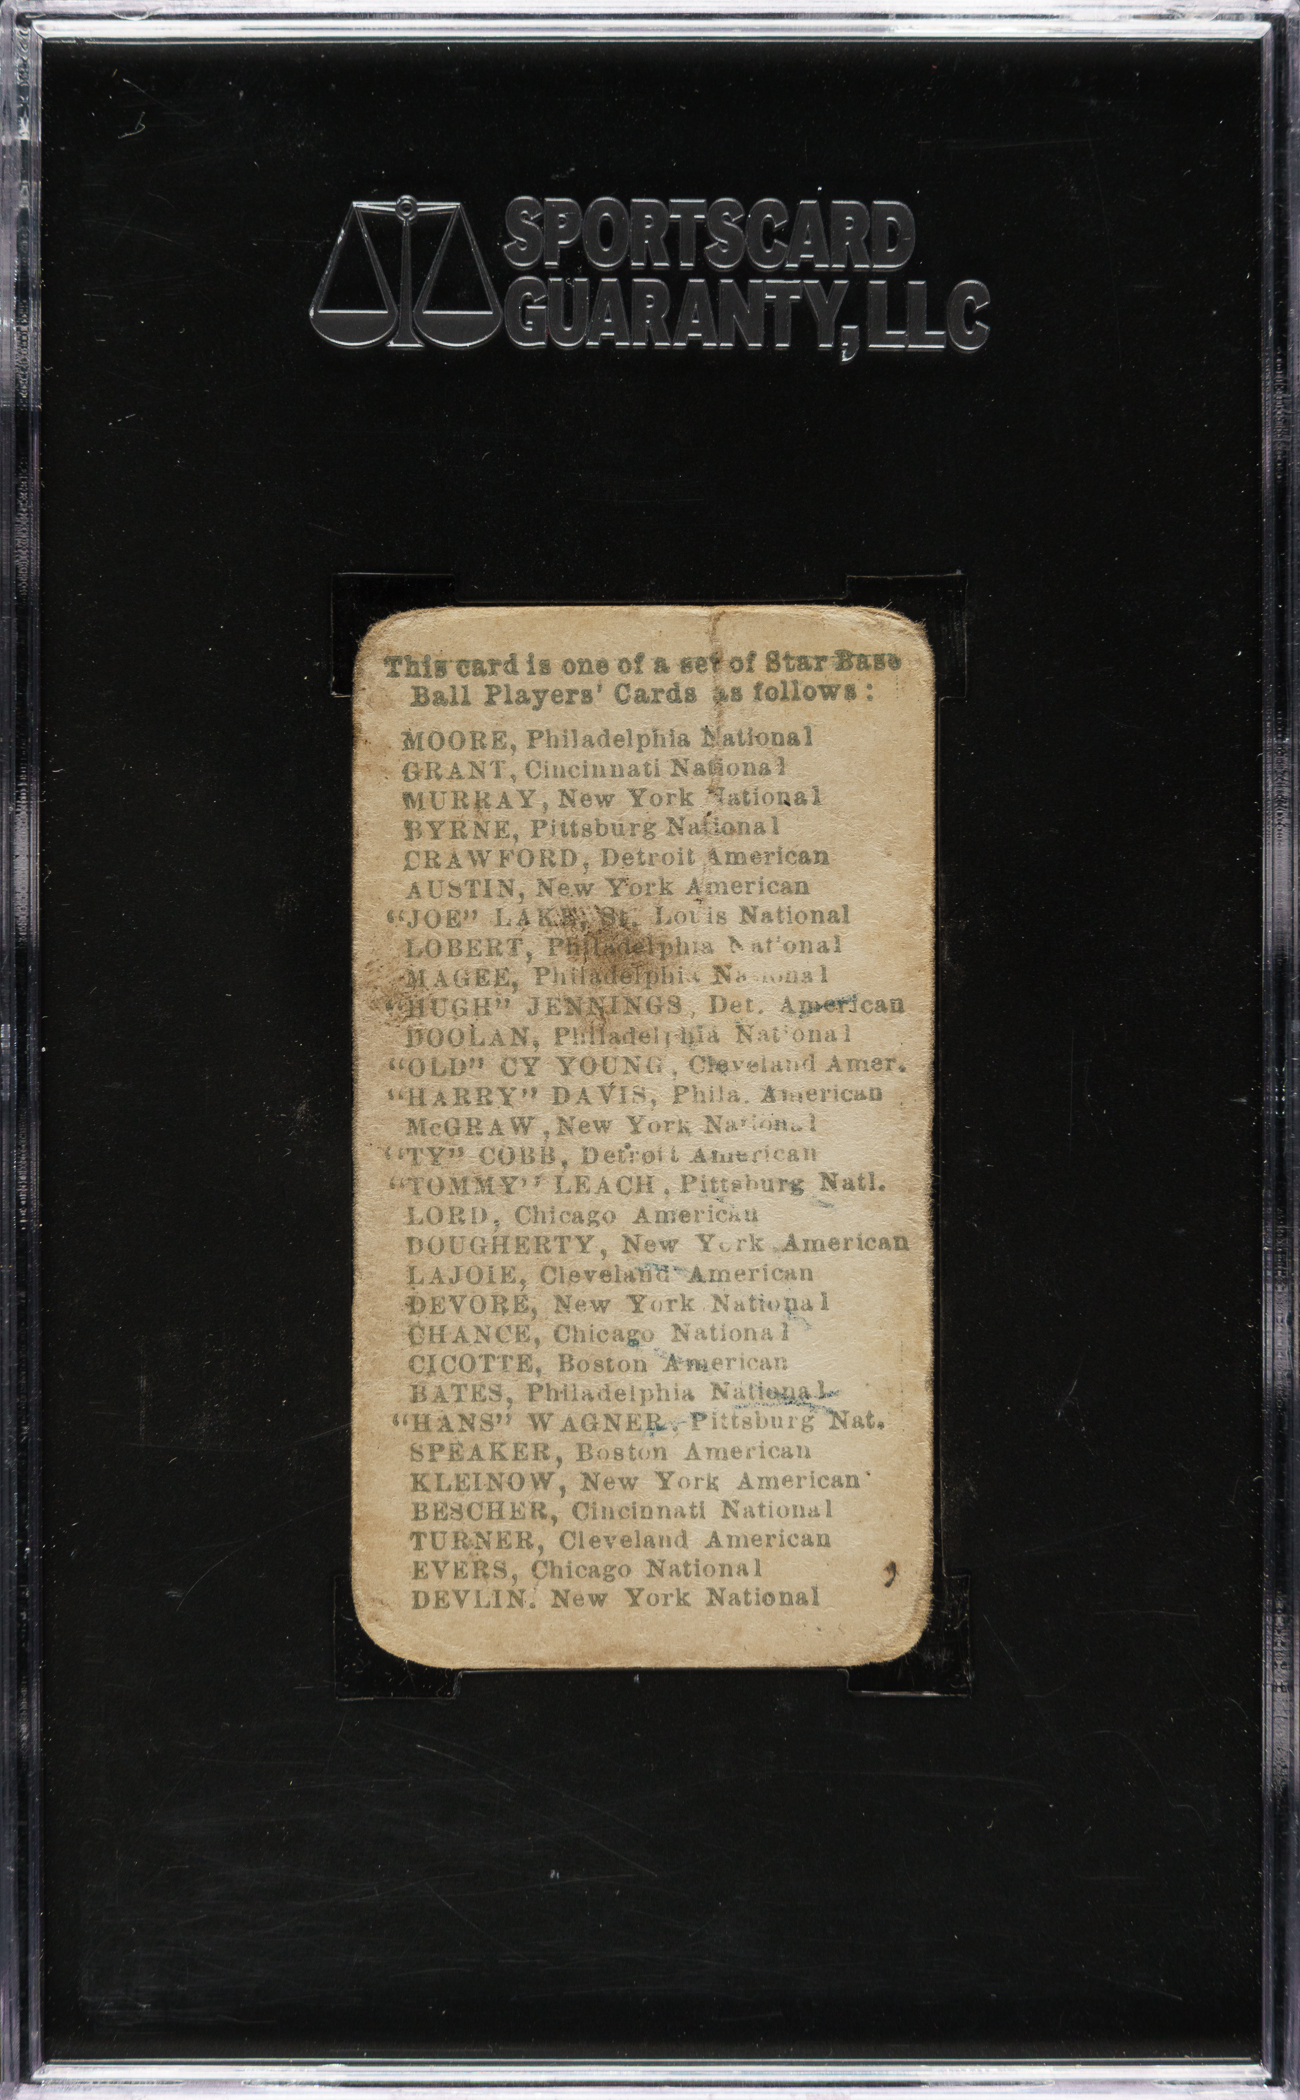 SPORTSCARD
GUARANTY, LLC
This card is one of a set of Star Base
Ball Players' Cards as follows:
MOORE, Philadelphia National
GRANT, Cincinnati National
MURRAY, New York National
BYRNE, Pittsburg National
CRAWFORD, Detroit American
AUSTIN, New York American
“JOE” LAKE, St. Louis National
LOBERT, Philadelphia National
MAGEE, Philadelphia National
“HUGH” JENNINGS, Det. American
DOOLAN, Philadelphia National
“OLD” CY YOUNG, Cleveland Amer.
“HARRY” DAVIS, Phila. American
McGRAW, New York National
“TY” COBB, Detroit American
“TOMMY” LEACH, Pittsburg Natl.
LORD, Chicago American
DOUGHERTY, New York American
LAJOIE, Cleveland American
DEVORE, New York National
CHANCE, Chicago National
CICOTTE, Boston American
BATES, Philadelphia National
“HANS” WAGNER, Pittsburg Nat.
SPEAKER, Boston American
KLEINOW, New York American
BESCHER, Cincinnati National
TURNER, Cleveland American
EVERS, Chicago National
DEVLIN. New York National